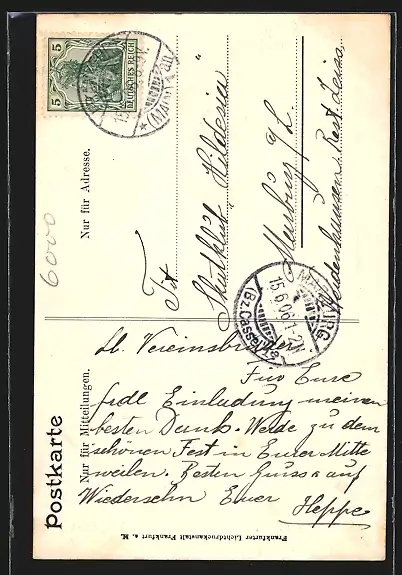 Postkarte
Nur für Mitteilungen.
Nur für Adresse.
5 DEUTSCHES REICH 5
Skatklub "Hilderia"
Marburg a/L.
MARBURG
15.6.06.1-2N.
(Bz. Cassel)
6000
Ll. Vereinsbrüder
Für Eure
frdl. Einladung meinen
besten Dank. Werde zu dem
schönen Fest in Eurer Mitte
weilen. Besten Gruss u. auf
Wiedersehn Euer
Heppe
Frankfurter Lichtdruckanstalt Frankfurt a. M.